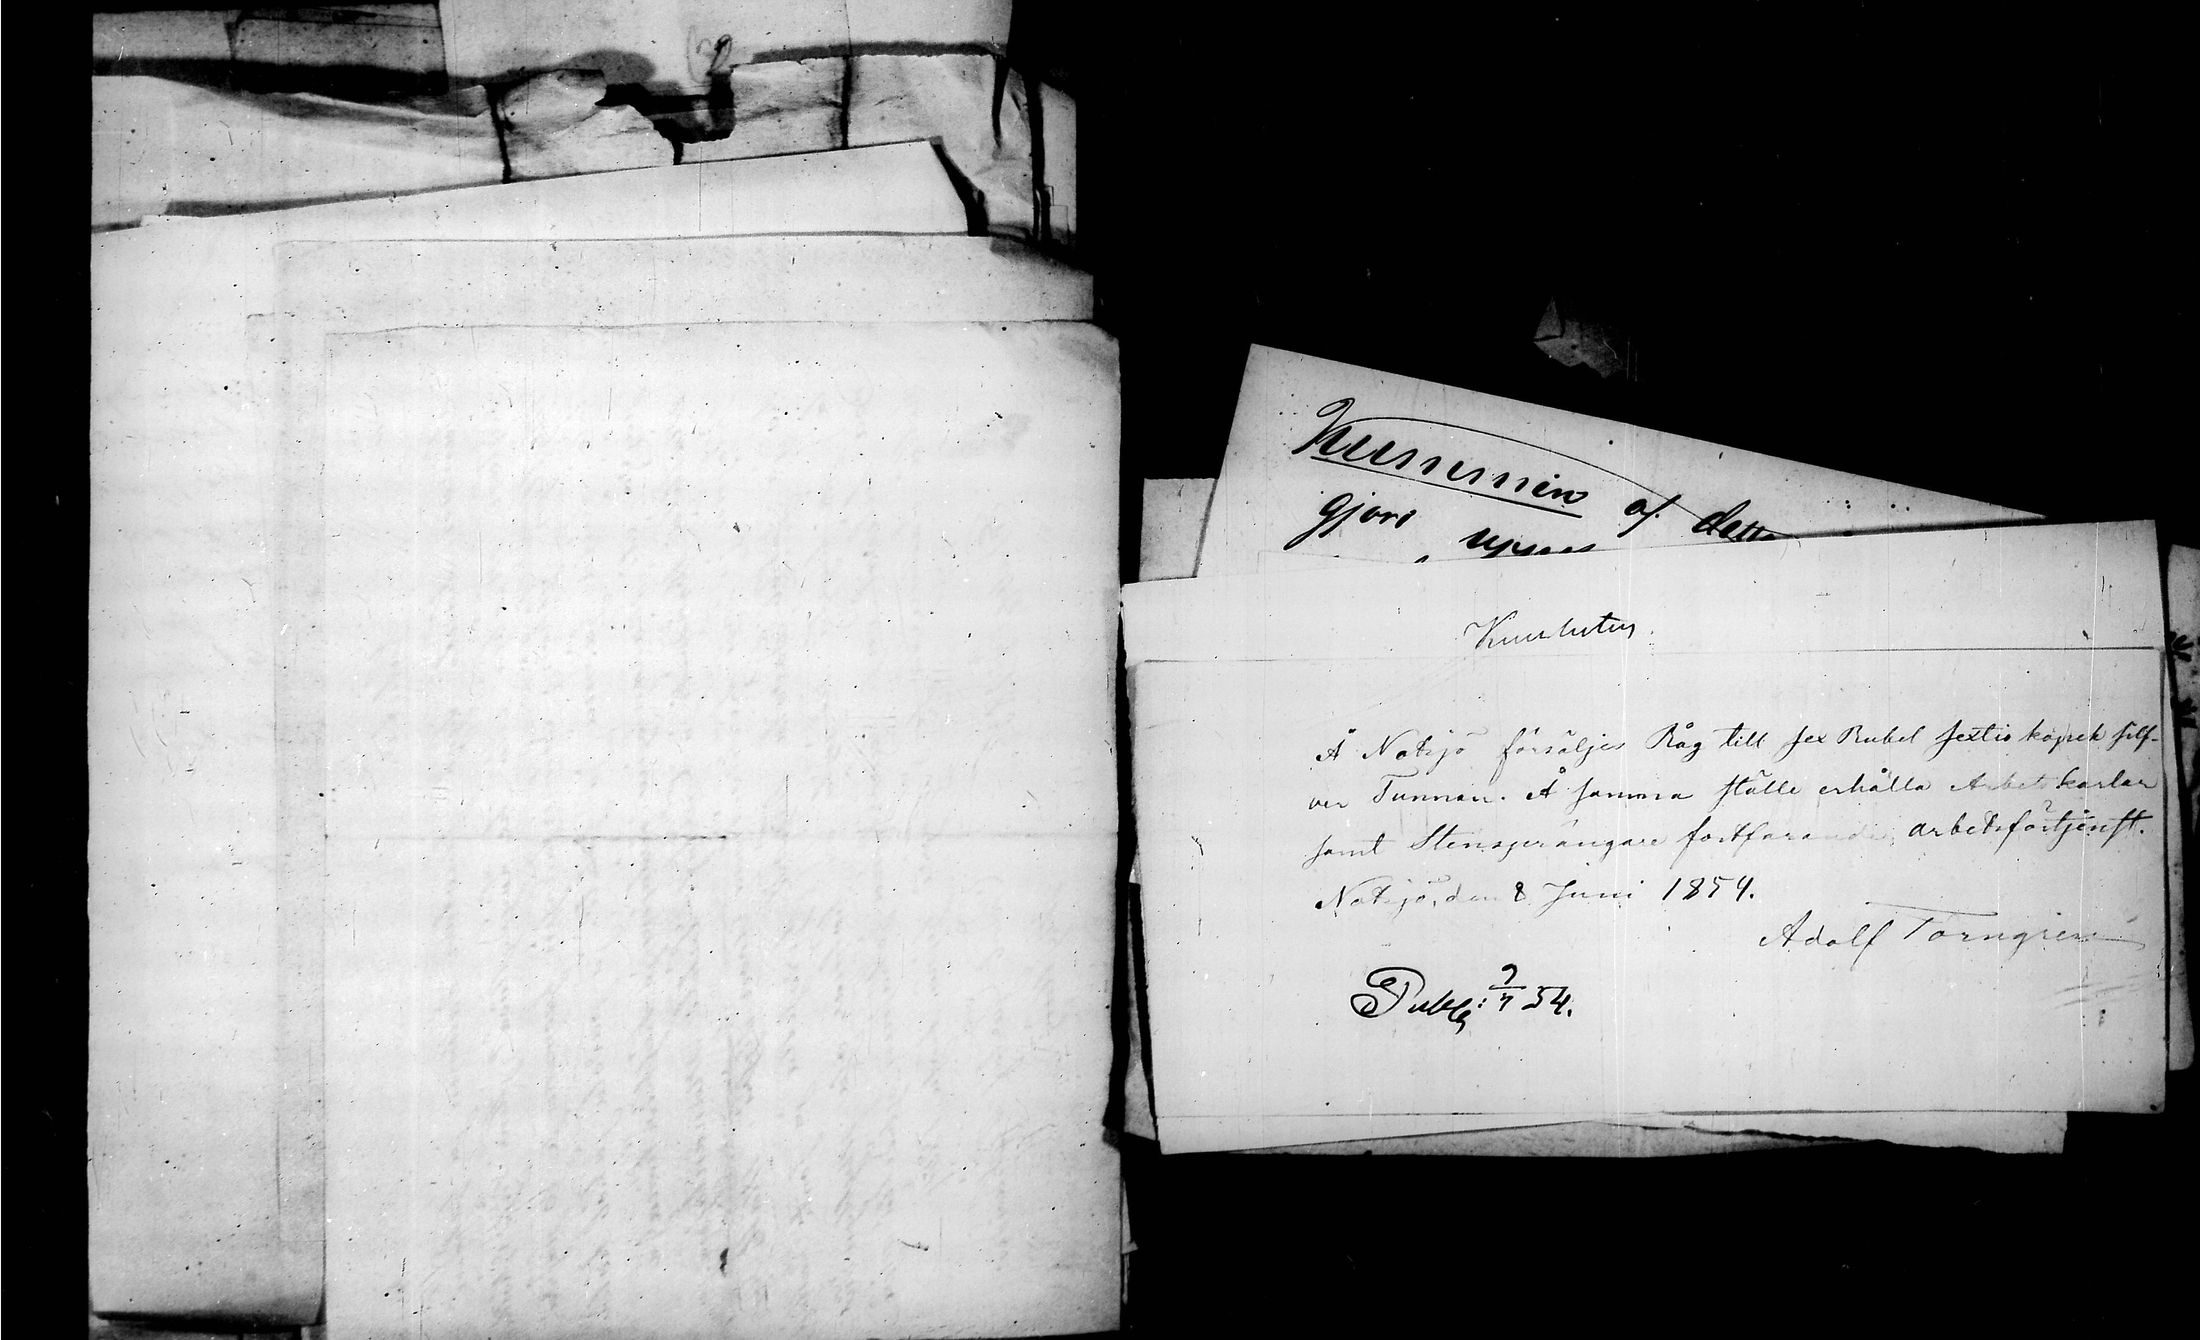 af detta
gjort
Kuulutus.
Å Notsjö försäljes Råg till sex Rubel sextio kopek silf-
ver Tunnan. Å samma ställe erhålla Arbetskarlar
samt Stensprängare fortfarande arbetsförtjenst.
Notsjö, den 8 Juni 1854.
Adolf Törngren
Publ: 9/7 54.